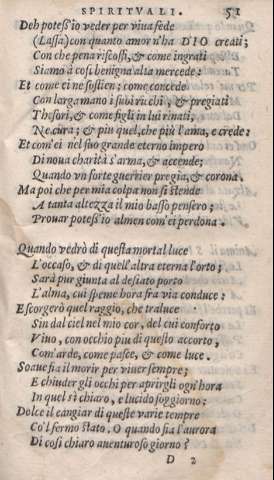 SPIRITVALI. 51
Deh potess'io veder per viua fede
(Lassa) con quanto amor n'ha DIO creati;
Con che pena riscossi, & come ingrati
Siamo à così benigna alta mercede:
Et come ei ne sostien; come concede
Con largamano i suoi ricchi, & pregiati
Thesori, & come figli in lui rinati,
Ne cura; & piu quel, che più l'ama, e crede:
Et com'ei nel suo grande eterno impero
Di noua charità s'arma, & accende;
Quando vn forte guerrier pregia, & corona.
Ma poi che per mia colpa non si stende
A tanta altezza il mio basso pensero;
Prouar potess'io almen com'ei perdona.
Quando vedrò di questa mortal luce
L'occaso, & di quell'altra eterna l'orto;
Sarà pur giunta al desiato porto
L'alma, cui speme hora fra via conduce:
E scorgerò quel raggio, che traluce
Sin dal ciel nel mio cor, del cui conforto
Viuo, con occhio piu di questo accorto,
Com'arde, come pasce, & come luce.
Soaue fia il morir per viuer sempre;
E chiuder gli occhi per aprirgli ogn'hora
In quel sì chiaro, e lucido soggiorno;
Dolce il cangiar di queste varie tempre
Co'l fermo stato. O quando fia l'aurora
Di così chiaro auenturoso giorno?
D 2